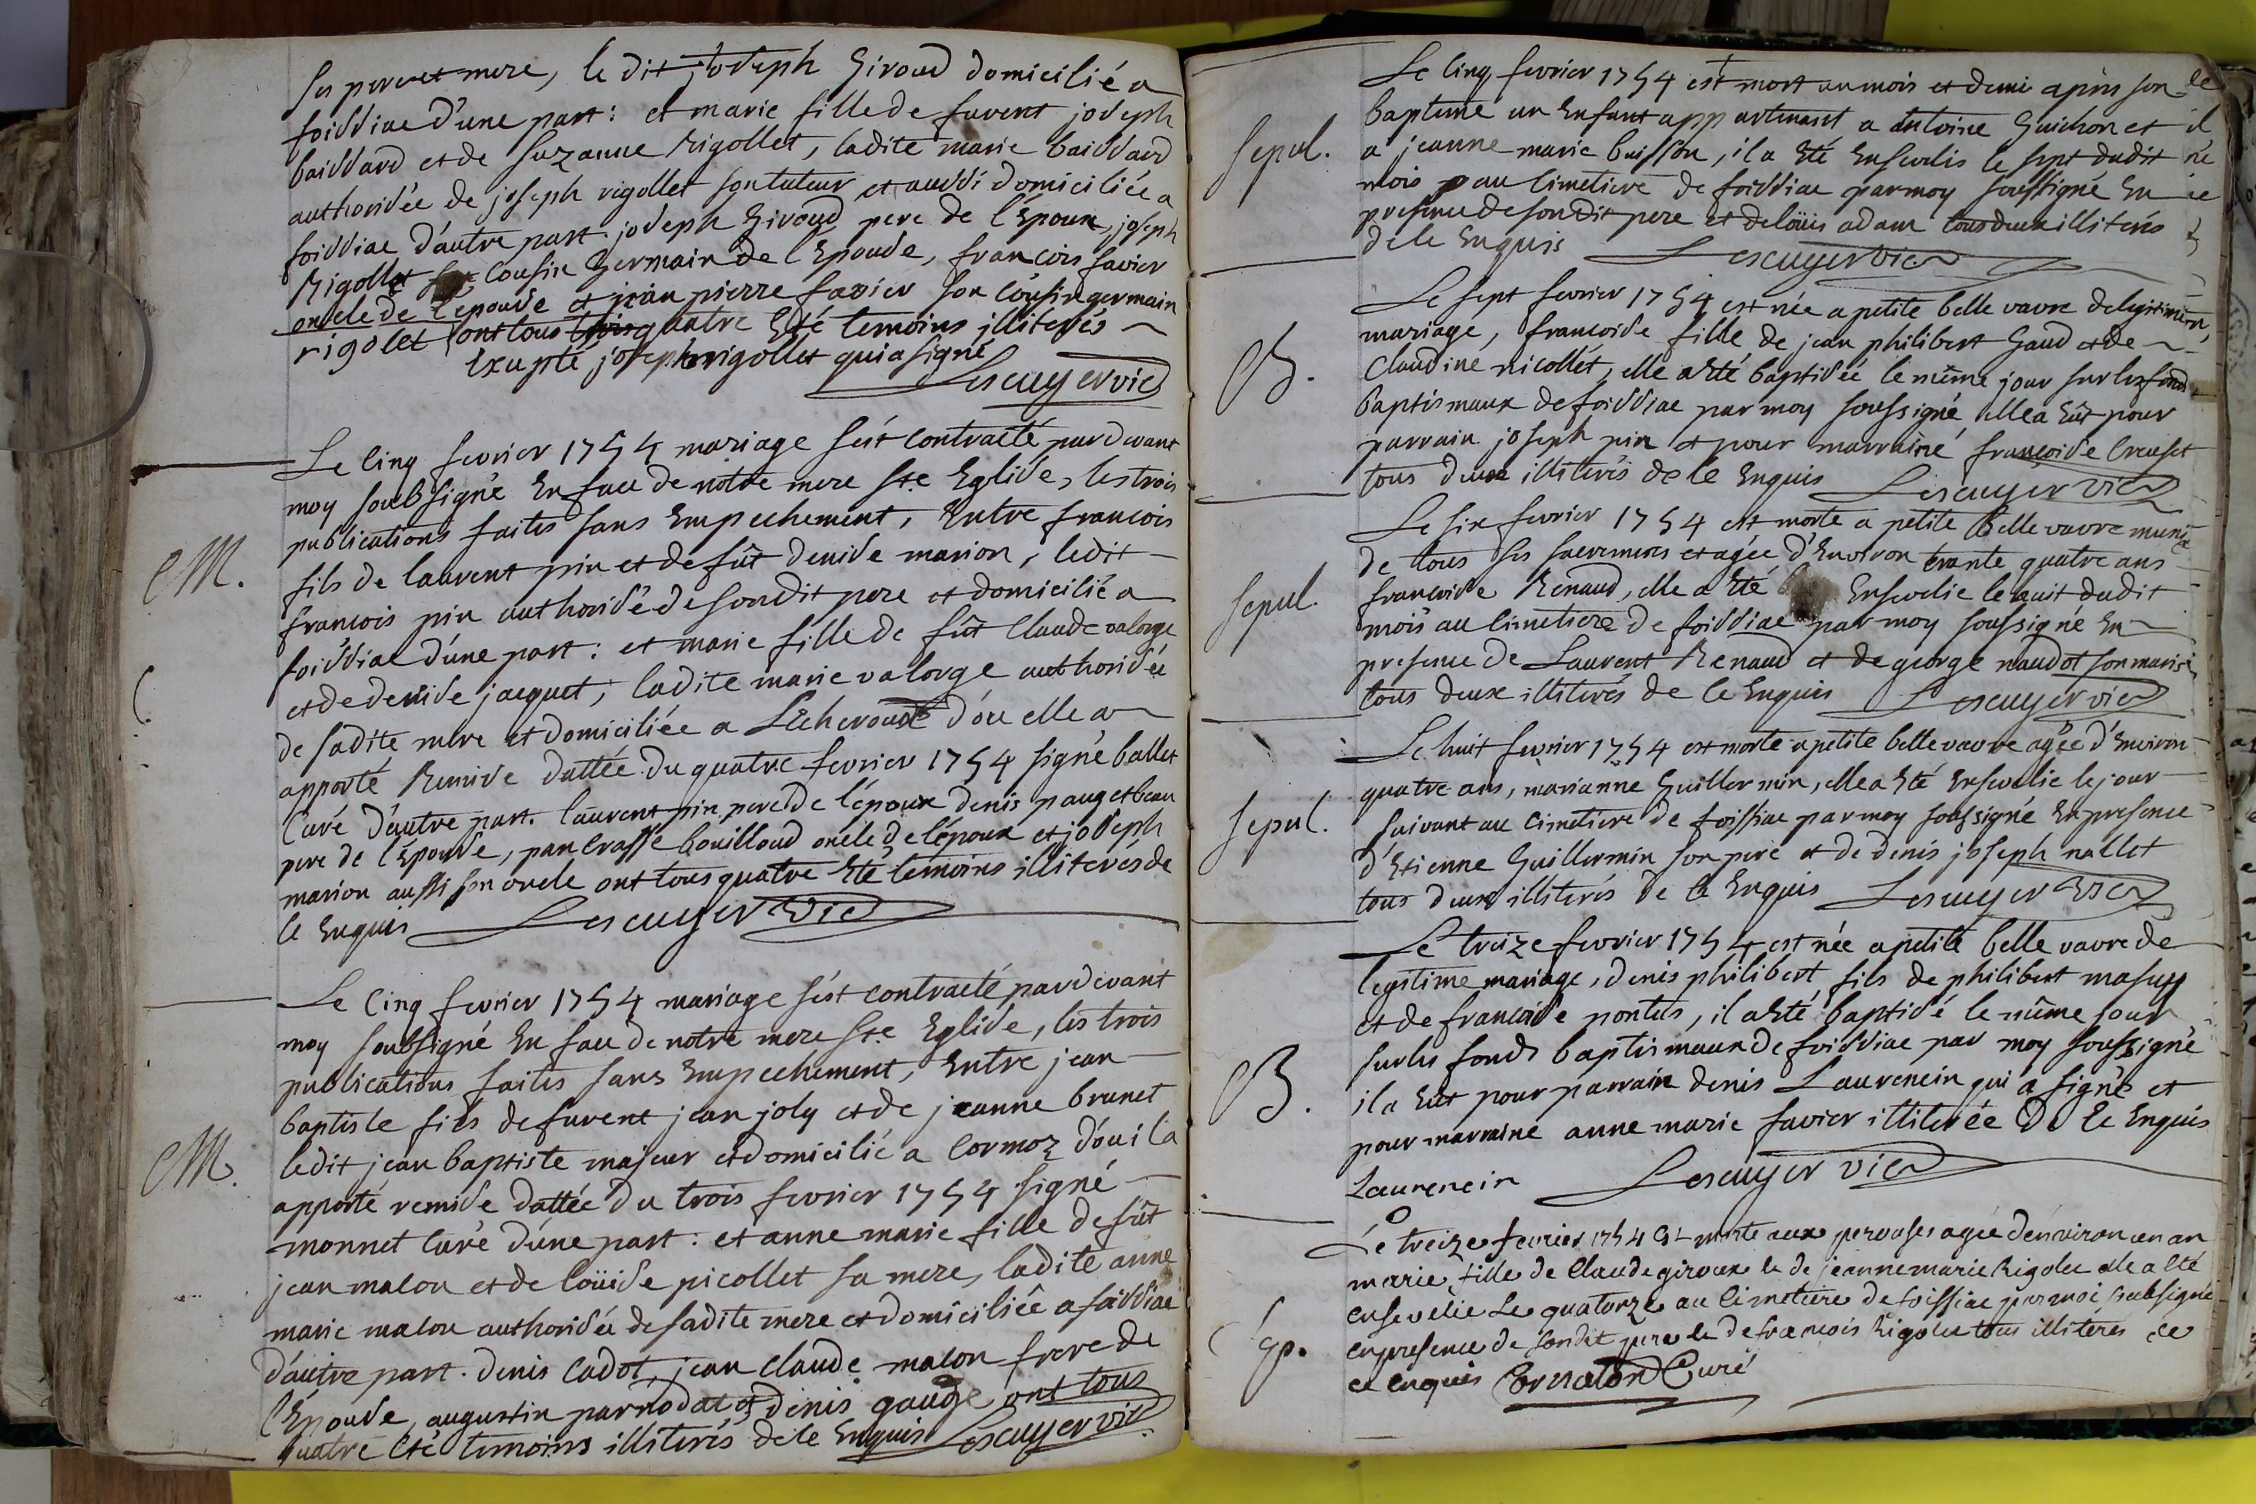 ses pere et mere, le dit joseph Giroud domicilié a
foissiac d'une part : et marie fille de furent joseph
baissard et de suzanne Rigollet, ladite marie baissard
authorisée de joseph rigollet son tuteur et aussi domiciliée a
foissiac d'autre part. joseph Giroud pere de l'Epoux, joseph
Rigollet Cousin Germain de l'Epouse, francois favier
oncle de l'epouse et jean pierre favier son cousin germain
rigolet ont tous quatre Eté temoins illiterés
Exupté joseph rigollet qui a signé
Lescuyer vic
Le Cinq fevrier 1754 mariage s'est Contracté pardevant
M.
moy soubsigné En face de notre mere Ste Eglise, les trois
publications faites sans Empechement, Entre francois
fils de laurent pin et de fût denise marion, ledit
francois pin authorisé de son dit pere et domicilié a
foissiac d'une part : et marie fille de fût Claude valorge
et de denise jacquet, ladite marie valorge authorisée
de sadite mere et domiciliée a L'Echeroude d'ou elle a
apporté Remise dattée du quatre fevrier 1754 signé ballet
Curé d'autre part. laurent pin pere de l'époux denis pauget beau
pere de l'Epouse, pancrasse bouilloud oncle de l'époux et joseph
marion aussi son oncle ont tous quatre Eté temoins illiterés de
ce Enquis Lescuyer vic
Le Cinq fevrier 1754 mariage s'est Contracté pardevant
M.
moy soubsigné En face de notre mere Ste Eglise, les trois
publications faites sans Empechement, Entre jean
baptiste fils de furent jean joly et de jeanne brunet
ledit jean baptiste majeur et domicilié a Cormoz d'ou il a
apporté remise dattée du trois fevrier 1754 signé
monnet Curé d'une part : et anne marie fille de fût
jean malon et de loüise picollet sa mere, ladite anne
marie malon authorisée de sadite mere et domiciliée a foissiac
d'autre part. denis Cadot, jean Claude malon frere de
l'Epouse, augustin parrodat et denis gaudge ont tous
quatre Eté temoins illiterés de ce Enquis Lescuyer vic
Le Cinq fevrier 1754 est mort un mois et demi après son
Sepul.
baptême un Enfant appartenant a antoine Guichon et
a jeanne marie buisson, il a Eté Ensevelis le sept dudit
mois au Cimetiere de foissiac par moy soussigné En
presence de son dit pere et de loüis adam tous deux illiterés
de ce Enquis Lescuyer vic
Le sept fevrier 1754 est née a petite belle vavre de legitime
B.
mariage, francoise fille de jean philibert Gaud et de
Claudine nicollet, elle a Eté baptisée le même jour sur les fonds
baptismaux de foissiac par moy soussigné, elle a Eût pour
parrain joseph pin et pour marraine francoise Creuset
tous deux illiterés de ce Enquis Lescuyer vic
Le six fevrier 1754 est morte a petite belle vavre munie
Sepul.
de tous ses sacremens et agée d'Environ trante quatre ans
francoise Renaud, elle a Eté Ensevelie le huit dudit
mois au Cimetiere de foissiac par moy soussigné En
presence de Laurent Renaud et de george naudot son mari
tous deux illiterés de ce Enquis Lescuyer vic
Le huit fevrier 1754 est morte a petite belle vavre agée d'Environ
Sepul.
quatre ans, marianne Guillermin, elle a Eté Ensevelie le jour
suivant au Cimetiere de foissiac par moy soussigné En presence
d'Etienne Guillermin son pere et de denis joseph nallet
tous deux illiterés de ce Enquis Lescuyer vic
Le treize fevrier 1754 est née a petite belle vavre de
B.
legitime mariage, denis philibert fils de philibert masuy
et de francoise pontus, il a Eté baptisé le même jour
sur les fonds baptismaux de foissiac par moy soussigné
il a Eût pour parrain denis Laurencin qui a signé et
pour marraine anne marie favier illiterée de ce Enquis
Laurencin Lescuyer vic
Le treize fevrier 1754 est morte aux perouses agée denviron un an
Sep.
marie fille de Claude giroux et de jeanne marie Rigolet elle a eté
ensevelie le quatorze au Cimetiere de foissiac par moi soubsigné
en presence de son dit pere et de francois Rigolet tous illiterés de
ce enquis Curé